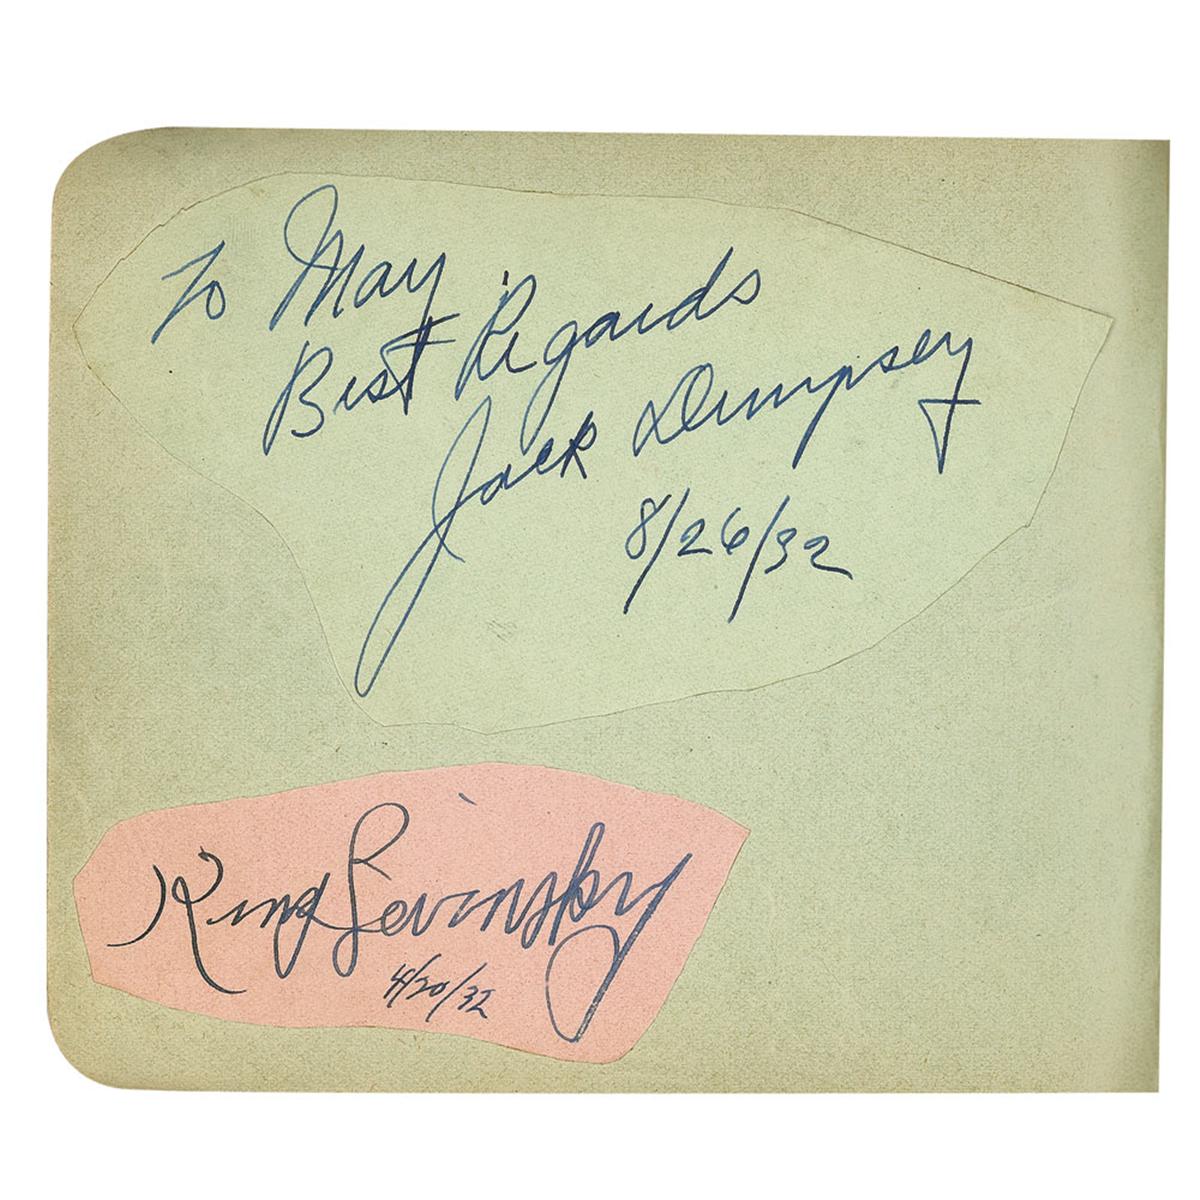 To May
Best Regards
Jack Dempsey
8/26/32
King Levinsky
4/20/32